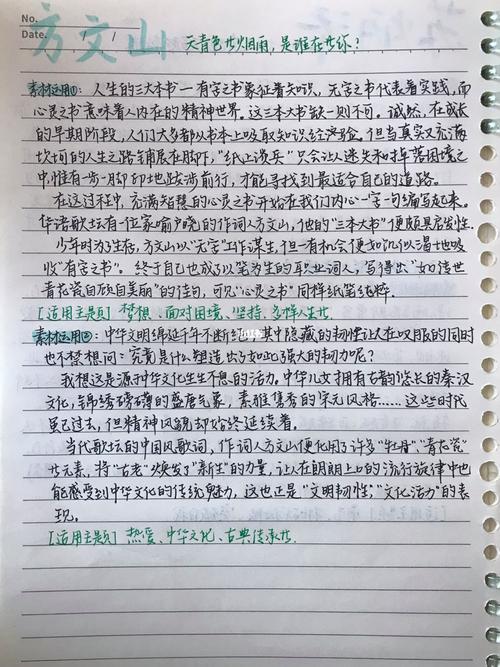 No.
Date. / /
方文山
天青色等烟雨，是谁在等你？
素材运用①：人生的三大本书一有字之书象征着知识，无字之书代表着实践，而
心灵之书意味着人内在的精神世界。这三本书缺一则不可。诚然，在成长
的早期阶段，人们大多都从书本上吸取知识经验。但当真实又充满
坎坷的人生之路铺展在脚下，“纸上谈兵”只会让人迷失和掉落困境之
中，惟有一步一脚印地跋涉前行，才能寻找到最适合自己的道路。
在这过程中，充满智慧的心灵之书开始在我们内心一字一句编写起来。
华语歌坛有一位家喻户晓的作词人方文山，他的“三本大书”便颇具启发性。
少年时为了生存，方文山以“无字”工作谋生，但一有机会便如饥似渴地吸
收“有字之书”。终于自己也成了以笔为生的职业词人，写得出“如传世
青花瓷自顾自美丽”的诗句，可见“心灵之书”同样纸笔纯粹。
[适用主题] 梦想、面对困境、坚持、多样人生等
素材运用②：中华文明绵延千年不断绝，其中隐藏的韧性让人在叹服的同时
也不禁想问：究竟是什么塑造出了如此强大的韧力呢？
我想这是源于中华文化生生不息的活力。中华儿女拥有古韵悠长的秦汉
文化，锦绣磅礴的盛唐气象，素雅隽秀的宋元风格……这些时代
虽已过去，但精神风貌却始终延续着。
当代歌坛的中国风歌词，作词人方文山便化用了许多“牡丹”、“青花瓷”
等元素，将“古老”焕发了“新生”的力量，让人在朗朗上口的流行旋律中也
能感受到中华文化的传统魅力，这也正是“文明韧性”，“文化活力”的表
现。
[适用主题] 热爱、中华文化、古典传承等